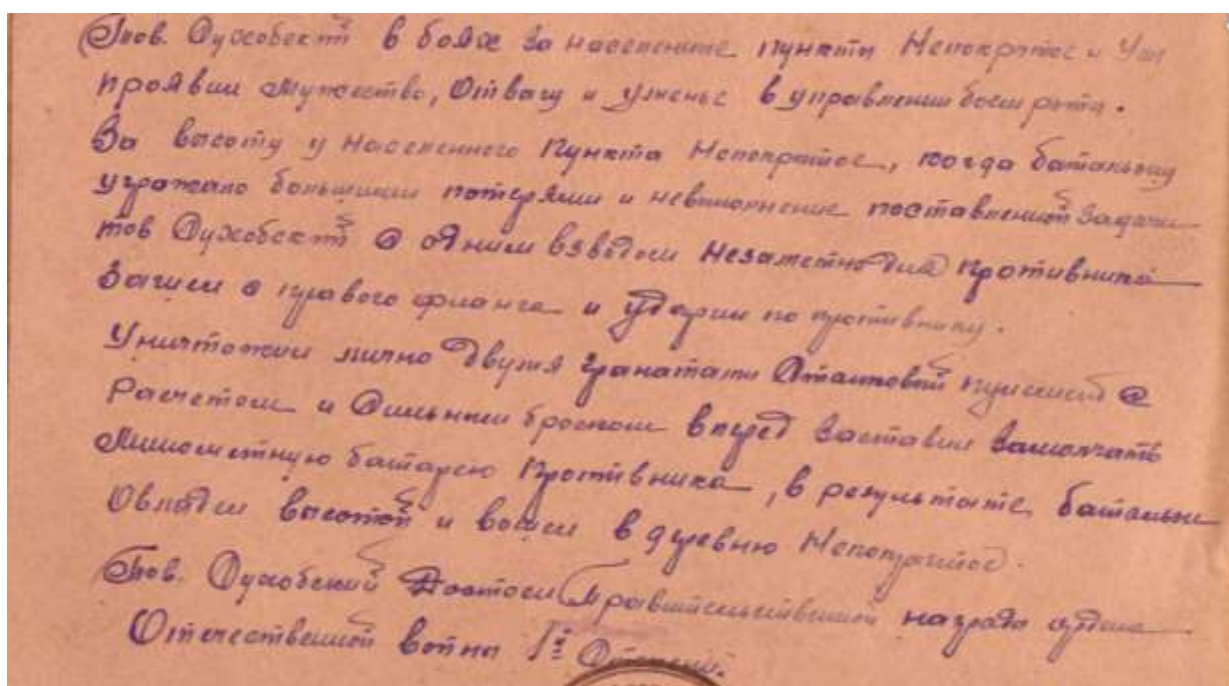 Тов. Духовский в боях за населенные пункты Непокрытое и
проявил мужество, отвагу и уменье в управлении боем роты.
За высоту у населенного пункта Непокрытое, когда батальону
угрожало большими потерями и невыполнение поставленной задачи
тов Духовский с одним взводом незаметно для противника
зашел с правого фланга и ударил по противнику.
Уничтожил лично двумя гранатами станковый пулемет с
расчетом и сильным броском вперед заставил замолчать
минометную батарею противника, в результате батальон
овладел высотой и вошел в деревню Непокрытое.
Тов. Духовский достоен правительственной награды ордена
Отечественной войны 1й степени.